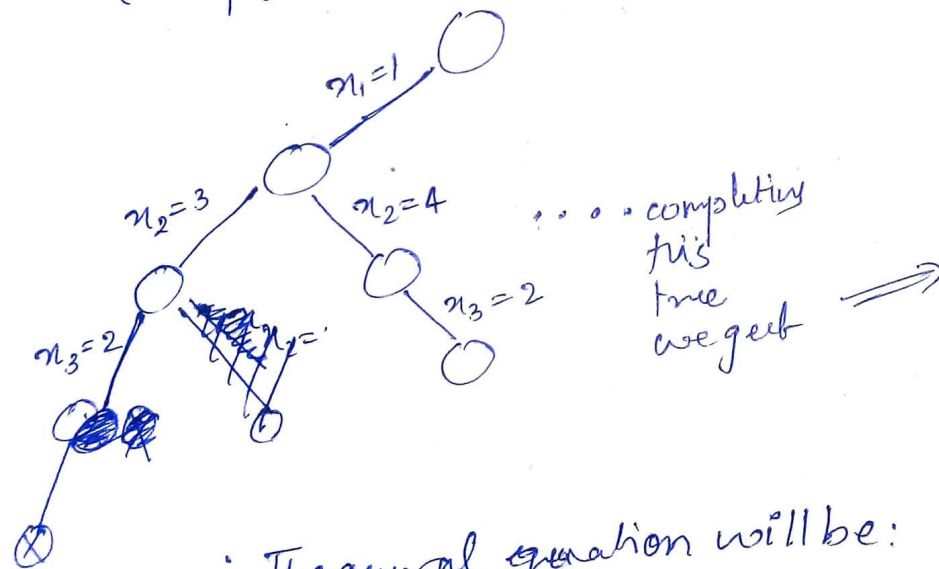 x₁=1
x₂=3
x₂=4
x₃=2
x₃=2
.... completing
this
tree
we get ⟹
general equation will be: